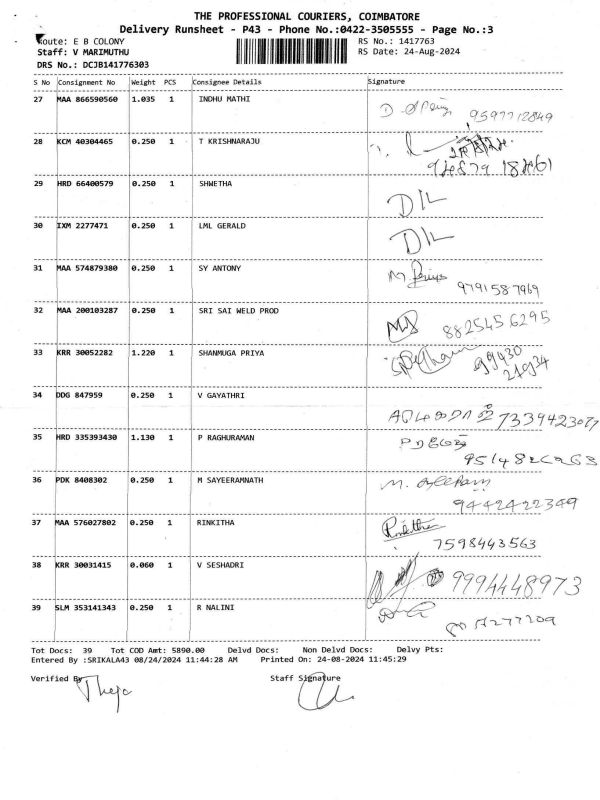 THE PROFESSIONAL COURIERS, COIMBATORE
Delivery Runsheet - P43 - Phone No.:0422-3505555 - Page No.:3
Route: E B COLONY RS No.: 1417763
Staff: V MARIMUTHU RS Date: 24-Aug-2024
DRS No.: DCJB141776303
S No Consignment No Weight PCS Consignee Details Signature
27 MAA 866590560 1.035 1 INDHU MATHI
9597712849
28 KCM 40304465 0.250 1 T KRISHNARAJU
29 HRD 66400579 0.250 1 SHWETHA
D/L
30 IXM 2277471 0.250 1 LML GERALD
D/L
31 MAA 574879380 0.250 1 SY ANTONY
9791587969
32 MAA 200103287 0.250 1 SRI SAI WELD PROD
8825456295
33 KRR 30052282 1.220 1 SHANMUGA PRIYA
34 DDG 847959 0.250 1 V GAYATHRI
35 HRD 335393430 1.130 1 P RAGHURAMAN
36 PDK 8408302 0.250 1 M SAYEERAMNATH
9442422349
37 MAA 576027802 0.250 1 RINKITHA Rinkitha
7598443563
38 KRR 30031415 0.060 1 V SESHADRI
9994448973
39 SLM 353141343 0.250 1 R NALINI
Tot Docs: 39 Tot COD Amt: 5890.00 Delvd Docs: Non Delvd Docs: Delvy Pts:
Entered By :SRIKALA43 08/24/2024 11:44:28 AM Printed On: 24-08-2024 11:45:29
Verified By Staff Signature
Theja